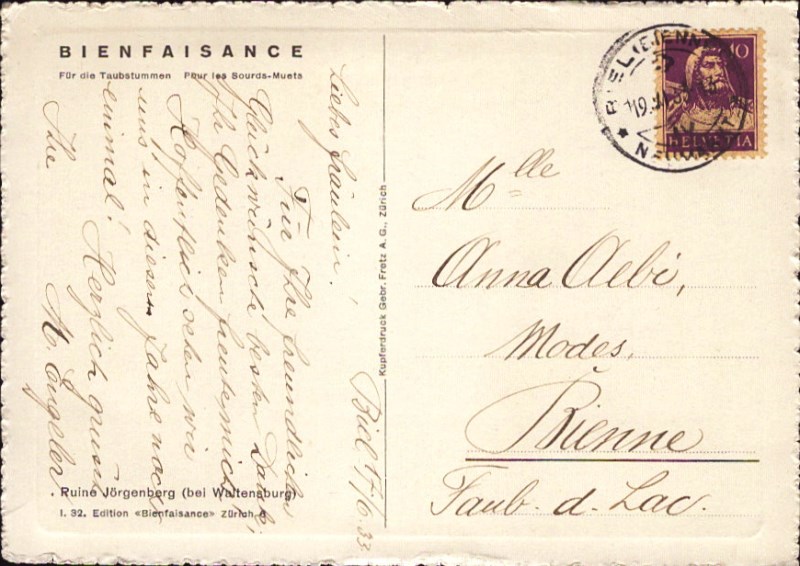 BIENFAISANCE
Für die Taubstummen Pour les Sourds-Muets
Biel 17/6 33
Liebs Fräulein!
Für Ihre freundlichen
Glückwünsche besten Dank,
Ihr Gedenken freute mich.
Hoffentlich sehen wir
uns in diesem Jahre noch
einmal! Herzlich grüsst
Ihre M. Engeler
Ruine Jörgenberg (bei Waltensburg)
I. 32. Edition «Bienfaisance» Zürich 6
Kupferdruck Gebr. Fretz A. G., Zürich
BIEL (BIENNE)
HELVETIA
10
Mlle
Anna Aebi,
Modes,
Bienne
Faub. d. Lac.